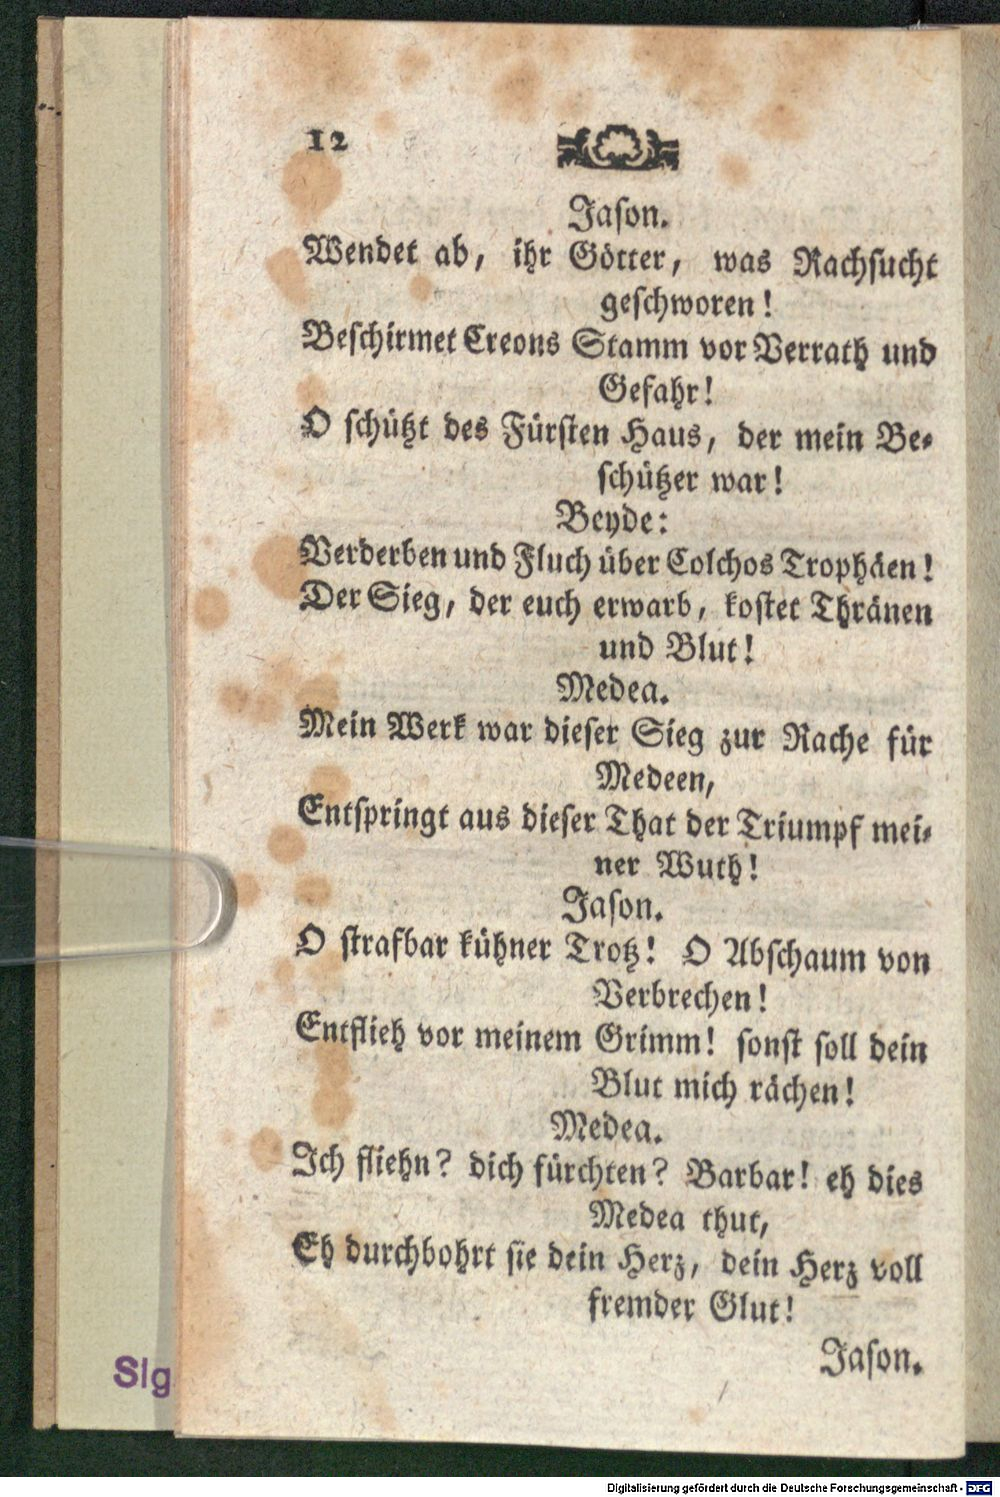 12
Jaſon.
Wendet ab, ihr Götter, was Rachſucht
geſchworen!
Beſchirmet Creons Stamm vor Verrath und
Gefahr!
O ſchützt des Fürſten Haus, der mein Be⸗
ſchützer war!
Beyde:
Verderben und Fluch über Colchos Trophäen!
Der Sieg, der euch erwarb, koſtet Thränen
und Blut!
Medea.
Mein Werk war dieſer Sieg zur Rache für
Medeen,
Entſpringt aus dieſer That der Triumpf mei⸗
ner Wuth!
Jaſon.
O ſtrafbar kühner Trotz! O Abſchaum von
Verbrechen!
Entflieh vor meinem Grimm! ſonſt ſoll dein
Blut mich rächen!
Medea.
Ich fliehn? dich fürchten? Barbar! eh dies
Medea thut,
Eh durchbohrt ſie dein Herz, dein Herz voll
fremder Glut!
Jaſon.
Sig
Digitalisierung gefördert durch die Deutsche Forschungsgemeinschaft - DFG